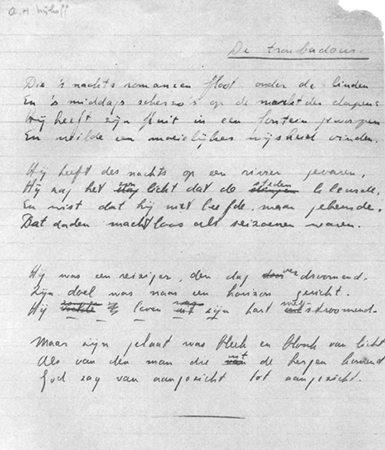 A.M. Nijhoff
De troubadour.
Die 's nachts romancen floot onder de linden
En 's middags scherzo's op de markt der dorpen
Hij heeft zijn fluit in een fontein geworpen
En wilde een moeielijker wijsheid vinden.
Hij heeft des nachts op een rivier gevaren,
Hij zag het licht dat de steden kleurde,
En wist dat hij niet leefde, maar gebeurde,
Dat daden machtloos als seizoenen waren.
Hij was een reiziger, den dag verdroomend.
Zijn doel was naar een horizon gericht.
Hij leven zijn hart stroomend.
Maar zijn gelaat was bleek en blonk van licht
Als van den man die uit de bergen komend
God zag van aangezicht tot aangezicht.